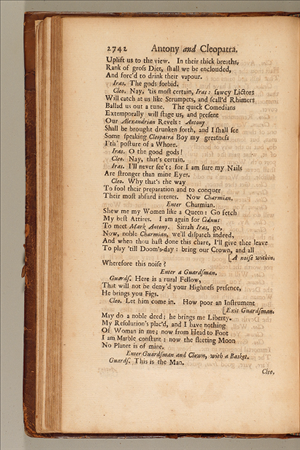 2742 Antony and Cleopatra.
Uplift us to the view. In their thick breaths,
Rank of gross Diet, shall we be enclouded,
And forc'd to drink their vapour.
Iras. The gods forbid.
Cleo. Nay, 'tis most certain, Iras: sawcy Lictors
Will catch at us like Strumpets, and scall'd Rhimers
Ballad us out a tune. The quick Comedians
Extemporally will stage us, and present
Our Alexandrian Revels: Antony
Shall be brought drunken forth, and I shall see
Some speaking Cleopatra Boy my greatness
I'th' posture of a Whore.
Iras. O the good gods!
Cleo. Nay, that's certain.
Iras. I'll never see't; for I am sure my Nails
Are stronger than mine Eyes.
Cleo. Why that's the way
To fool their preparation and to conquer
Their most absurd intents. Now Charmian.
Enter Charmian.
Shew me my Women like a Queen: Go fetch
My best Attires. I am again for Cidnus
To meet Mark Antony. Sirrah Iras, go,
Now, noble Charmian, we'll dispatch indeed,
And when thou hast done this chare, I'll give thee leave
To play 'till Doom's-day: bring our Crown, and all
[A noise within.
Wherefore this noise?
Enter a Guardsman.
Guards. Here is a rural Fellow,
That will not be deny'd your Highness presence,
He brings you Figs.
Cleo. Let him come in. How poor an Instrument
[Exit Guardsman.
May do a noble deed: he brings me Liberty.
My Resolution's plac'd, and I have nothing
Of Woman in me; now from Head to Foot
I am Marble constant: now the fleeting Moon
No Planet is of mine.
Enter Guardsman and Clown, with a Basket.
Guards. This is the Man.
Cleo.